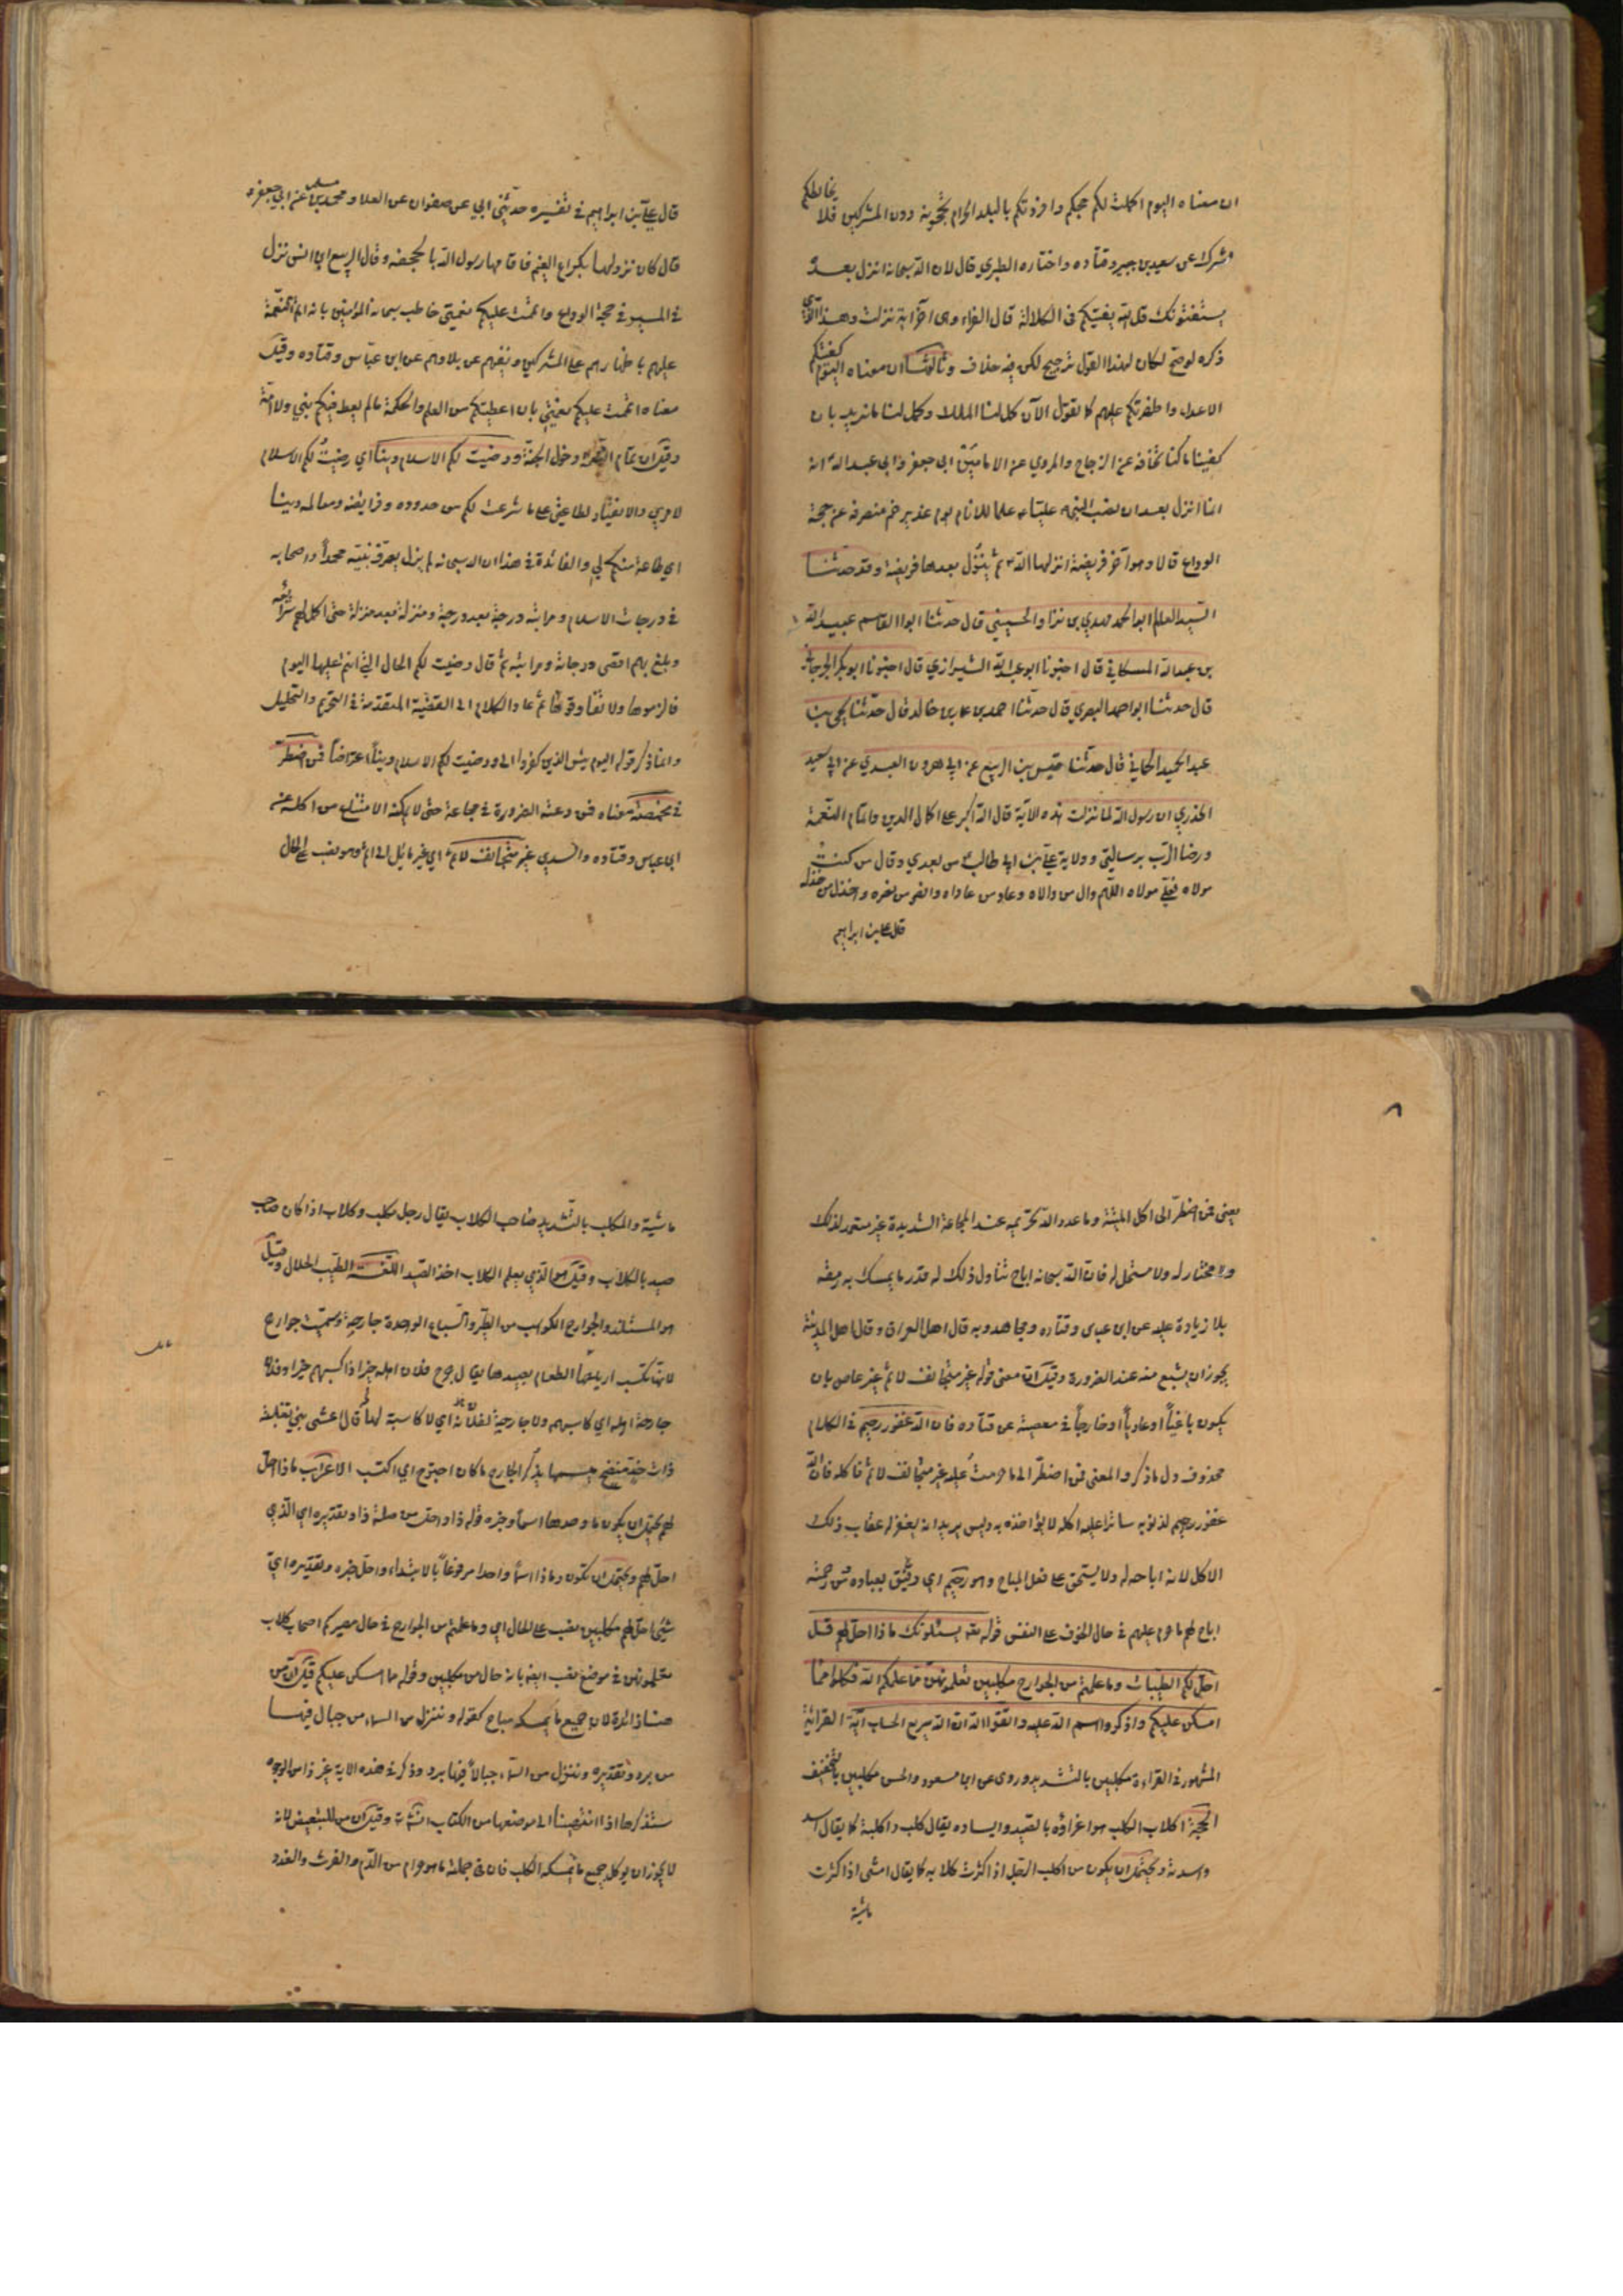 ان معناه اليوم اكملت لكم حجكم وافردتكم بالبلد الحرام تحجونه دون المشركين فلا يخالطكم
مشرك عن سعيد بن جبير وقتاده واختاره الطبري قال لان الله سبحانه انزل بعده
يستفتونك قل الله يفتيكم فى الكلالة قال الفراء وهى آخر آية نزلت وهذا الذي
ذكره لو صح لكان لهذا القول ترجيح لكن فيه خلاف وثالثها ان معناه اليوم كفيتكم
الاعداء واظفرتكم عليهم كما تقول الآن كمل لنا الملك وكمل لنا ما نريد بان
كفينا ما كنا نخافه عن الزجاج والمروي عن الامامين ابى جعفر وابى عبد الله انه
انما انزل بعد ان نصب النبى عليا علما للانام يوم غدير خم منصرفه عن حجة
الوداع قالا وهو آخر فريضة انزلها الله ثم ينزل بعدها فريضة وقد حدثنا
السيد العالم ابو الحمد مهدي بن نزار الحسيني قال حدثنا ابوا القاسم عبيد الله
بن عبد الله الحسكاني قال اخبرنا ابو عبد الله الشيرازي قال اخبرنا ابو بكر الجرجاني
قال حدثنا ابو احمد البصري قال حدثنا احمد بن عمار بن خالد قال حدثنا يحيى بن
عبد الحميد الحماني قال حدثنا قيس بن الربيع عن ابى هرون العبدي عن ابى سعيد
الخدري ان رسول الله لما نزلت هذه الآية قال الله اكبر على اكمال الدين واتمام النعمة
ورضا الرب برسالتي وولاية علي بن ابى طالب من بعدي وقال من كنت
مولاه فعلي مولاه اللهم وال من والاه وعاد من عاداه وانصر من نصره واخذل من خذله
قال على بن ابراهيم
قال علي بن ابراهيم فى تفسيره حدثني ابي عن صفوان عن العلا ومحمد بن مسلم عن ابي جعفر
قال كان نزولها بكراع الغيم فاقامها رسول الله بالجحفه وقال الربيع ابن انس نزل
فى المسير فى حجة الوداع واتممت عليكم نعمتي خاطب سبحانه المؤمنين بانه اتم النعمة
عليهم باظهارهم على المشركين ونفيهم عن بلادهم عن ابن عباس وقتاده وقيل
معناه اتممت عليكم نعمتي بان اعطيتكم من العلم والحكمة ما لم يعط قبلكم نبي ولا امة
وقيل ان تمام النعمة دخول الجنة ورضيت لكم الاسلام دينا اي رضيت لكم الاسلام
لامري والانقياد لطاعتي على ما شرعت لكم من حدوده وفرايضه ومعالمه دينا
اي طاعة منكم لي والفائدة فى هذا ان الله سبحانه لم يزل يصرف نبيه محمدا واصحابه
فى درجات الاسلام ومراتبه درجة بعد درجة ومنزلة بعد منزلة حتى اكمل لهم شرائعه
وبلغ بهم اقصى درجاته ومراتبه ثم قال رضيت لكم الحال التي انتم عليها اليوم
فالزموها ولا تفارقوها ثم عاد الكلام الى القضية المتقدمة فى التحريم والتحليل
وانما ذكر قوله اليوم يئس الذين كفروا الى ورضيت لكم الاسلام دينا اعتراضا فمن اضطر
فى مخمصة معناه فمن دعته الضرورة فى مجاعة حتى لا يمكنه الامتناع من اكله عن
ابى عباس وقتاده والسدي غير متجانف لاثم اي غير مائل الى اثم وهو نصب على الحال
يعنى فمن اضطر الى اكل الميتة وما عدد الله تحريمه عند المجاعة الشديدة غير متعمد لذلك
ولا مختار له ولا مستحل له فان الله سبحانه اباح تناول ذلك له قدر ما يمسك به رمقه
بلا زيادة عليه عن ابن عباس وقتاده ومجاهد وبه قال اهل العراق وقال اهل المدينة
يجوز ان يشبع منه عند الضرورة وقيل ان معنى قوله غير متجانف لاثم غير عاص بان
يكون باغيا او عاديا او خارجا فى معصية عن قتاده فان الله غفور رحيم فى الكلام
محذوف دل ما ذكر والمعنى فمن اضطر الى ما حرمت عليه غير متجانف لاثم فاكله فان الله
غفور رحيم لذنوبه ساترا عليه اكله لا يؤاخذه به وليس يريد انه يغفر له عقاب ذلك
الاكل لانه اباحه له ولا يستحق على فعل المباح وهو رحيم اي رفيق بعباده من رحمته
اباح لهم ما حرم عليهم فى حال الخوف على النفس قوله تعه يسئلونك ماذا احل لهم قل
احل لكم الطيبات وما علمتم من الجوارح مكلبين تعلمونهن مما علمكم الله فكلوا مما
امسكن عليكم واذكروا اسم الله عليه واتقوا الله ان الله سريع الحساب آية القرائة
المشهور فى القراءة مكلبين بالتشديد وروى عن ابن مسعود والحسن مكلبين بالتخفيف
الحجة اكلاب الكلب هو اغراؤه بالصيد وايساده يقال كلب واكلبته كما يقال اسد
واسدته ويحتمل ان يكون من اكلب الرجل اذا كثرت كلابه كما يقال امشى اذا كثرت
ماشية
ماشية والمكلب بالتشديد صاحب الكلاب يقال رجل مكلب وكلاب اذا كان صاحب
صيد بالكلاب وقيل هو الذي يعلم الكلاب اخذ الصيد اللغة الطيب الحلال وقيل
هو المستلذ والجوارح الكواسب من الطير والسباع الواحدة جارحة وسميت جوارح
لانها تكتسب اربابها الطعام بصيدها يقال جرح فلان اهله خيرا اذا كسبهم خيرا وفلان
جارحة اهله اي كاسبهم ولا جارحة لفلانة اي لا كاسبة لها قال اعشى بني تغلبة
ذات منضج ميسمها يذكر الجارح ما كان اجترح اي اكتسب الاعراب ماذا احل
لهم يحتمل ان يكون ما وحدها اسما وخبره قوله ذا واحل من صلة ذا وتقديره اي الذي
احل لهم ويحتمل ان تكون وماذا اسما واحدا مرفوعا بالابتداء واحل خبره وتقديره اي
شئ احل لهم مكلبين نصب على الحال اي وما علمتم من الجوارح فى حال مصيركم اصحاب كلاب
تعلمونهن فى موضع نصب ايضا بانه حال من مكلبين وقوله مما امسكن عليكم قيل ان من
هنا زائدة لان جميع ما يمسكه مباح كقوله وننزل من السماء من جبال فيها
من برد وتقديره وننزل من السماء جبالا فيها برد وذكر فى هذه الاية غير ذا من الوجوه
سنذكرها اذا انتهينا الى موضعها من الكتاب انشاء وقيل ان من للتبعيض لانه
لا يجوز ان يوكل جميع ما يمسكه الكلب فان فى جملته ما هو حرام من الدم والفرث والغدد